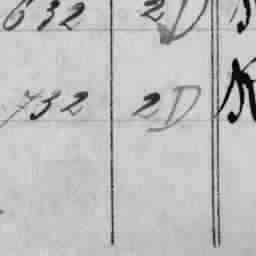 632 2D K
732 2D K